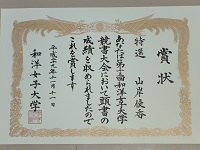 賞状
特選 山岸優香
あなたは第十回和洋女子大学
競書大会において頭書の
成績を収められましたので
これを賞します
平成二十九年十一月十一日
和洋女子大学